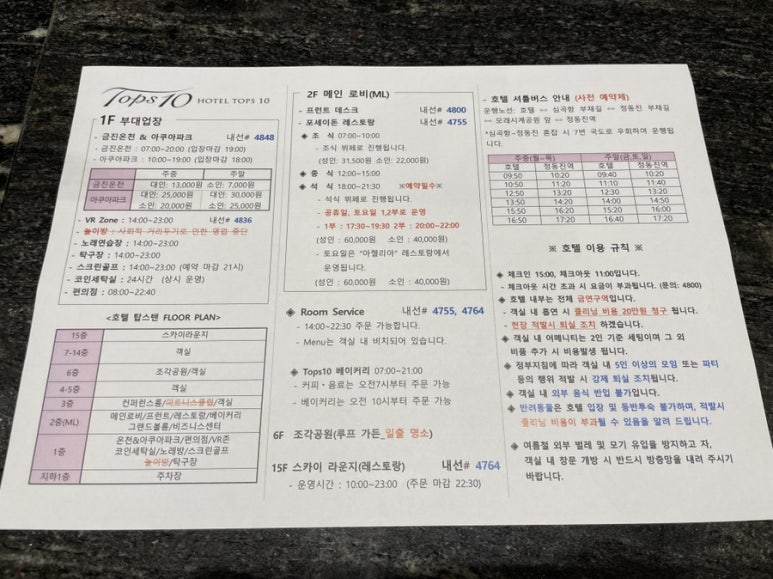 Tops10 HOTEL TOPS 10
1F 부대업장
- 금진온천 & 아쿠아파크 내선# 4848
- 금진온천 : 07:00~20:00 (입장마감 19:00)
- 아쿠아파크 : 10:00~19:00 (입장마감 18:00)
주중 주말
금진온천 대인: 13,000원 소인: 7,000원
아쿠아파크 대인: 25,000원 대인: 30,000원
소인: 20,000원 소인: 25,000원
- VR Zone : 14:00~23:00 내선# 4836
- 놀이방 : 사회적 거리두기로 인한 영업 중단
- 노래연습장 : 14:00~23:00
- 탁구장 : 14:00~23:00
- 스크린골프 : 14:00~23:00 (예약 마감 21시)
- 코인세탁실 : 24시간 (상시 운영)
- 편의점 : 08:00~22:40
<호텔 탑스텐 FLOOR PLAN>
15층 스카이라운지
7-14층 객실
6층 조각공원/객실
4-5층 객실
3층 컨퍼런스룸/피트니스클럽/객실
2층(ML) 메인로비/프런트/레스토랑/베이커리
그랜드볼룸/비즈니스센터
1층 온천&아쿠아파크/편의점/VR존
코인세탁실/노래방/스크린골프
놀이방/탁구장
지하1층 주차장
2F 메인 로비(ML)
- 프런트 데스크 내선# 4800
- 포세이돈 레스토랑 내선# 4755
◈ 조 식 07:00~10:00
- 조식 뷔페로 진행됩니다.
(성인: 31,500원 소인: 22,000원)
◈ 중 식 12:00~15:00
◈ 석 식 18:00~21:30 ※예약필수※
- 석식 뷔페로 진행됩니다.
- 공휴일, 토요일 1,2부로 운영
- 1부 : 17:30~19:30 2부 : 20:00~22:00
(성인 : 60,000원 소인 : 40,000원)
- 토요일은 "아젤리아" 레스토랑에서
운영됩니다.
(성인 : 60,000원 소인 : 40,000원)
◈ Room Service 내선# 4755, 4764
- 14:00~22:30 주문 가능합니다.
- Menu는 객실 내 비치되어 있습니다.
◈ Tops10 베이커리 07:00~21:00
- 커피·음료는 오전7시부터 주문 가능
- 베이커리는 오전 10시부터 주문 가능
6F 조각공원(루프 가든 일출 명소)
15F 스카이 라운지(레스토랑) 내선# 4764
- 운영시간 : 10:00~23:00 (주문 마감 22:30)
- 호텔 셔틀버스 안내 (사전 예약제)
운행노선: 호텔 ⇔ 심곡항 부채길 ⇔ 정동진 부채길
⇔ 모래시계공원 앞 ⇔ 정동진역
*심곡항~정동진 혼잡 시 7번 국도로 우회하여 운행됩
니다.
주중(월~목) 주말(금,토,일)
호텔 정동진역 호텔 정동진역
09:50 10:20 09:40 10:20
10:50 11:20 11:10 11:40
11:50 12:20 12:10 12:40
13:50 14:20 14:00 14:50
15:50 16:20 15:20 16:00
16:50 17:20 16:40 17:20
※ 호텔 이용 규칙 ※
◈ 체크인 15:00, 체크아웃 11:00입니다.
- 체크아웃 시간 초과 시 요금이 부과됩니다. (문의: 4800)
◈ 호텔 내부는 전체 금연구역입니다.
- 객실 내 흡연 시 클리닝 비용 20만원 청구 됩니다.
- 현장 적발시 퇴실 조치 하겠습니다.
◈ 객실 내 어메니티는 2인 기준 세팅이며 그 외
비품 추가 시 비용발생 됩니다.
◈ 정부지침에 따라 객실 내 5인 이상의 모임 또는 파티
등의 행위 적발 시 강제 퇴실 조치됩니다.
◈ 객실 내 외부 음식 반입 불가입니다.
◈ 반려동물은 호텔 입장 및 동반투숙 불가하며, 적발시
클리닝 비용이 부과될 수 있음을 알려 드립니다.
◈ 여름철 외부 벌레 및 모기 유입을 방지하고 자,
객실 내 창문 개방 시 반드시 방충망을 내려 주시기
바랍니다.